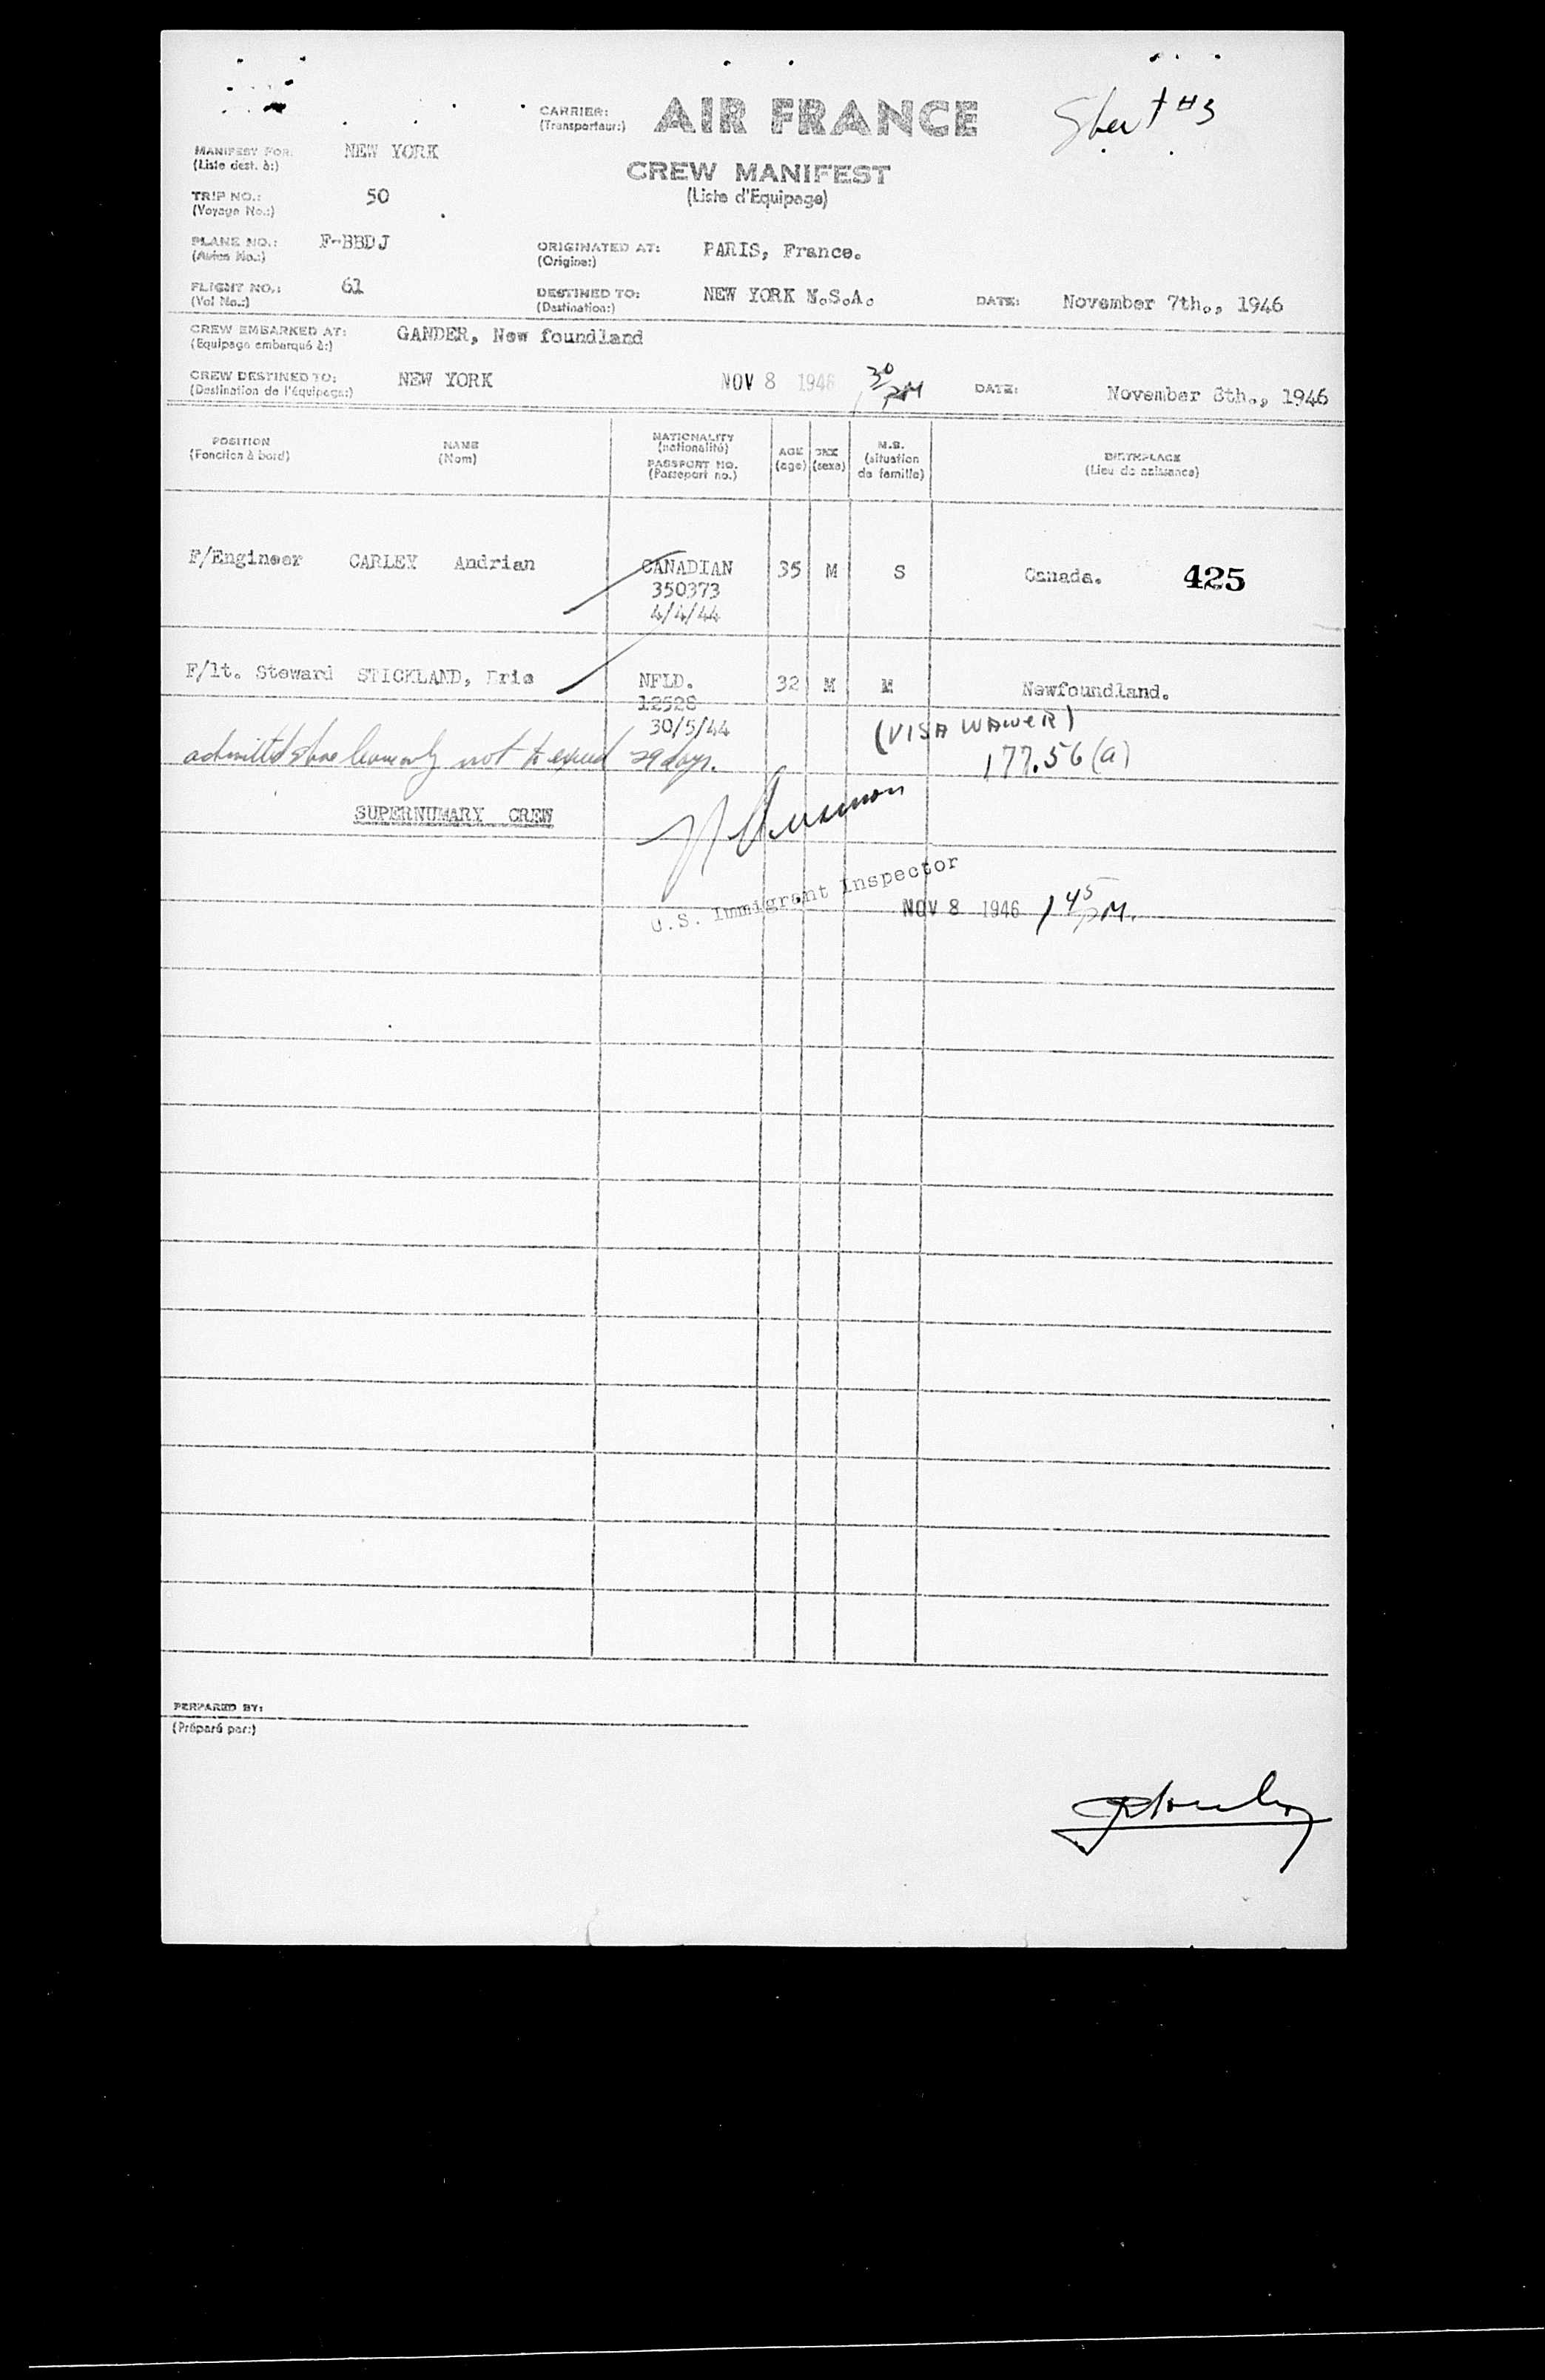 CARRIER: AIR FRANCE Sheet #3
(Transporteur:)
MANIFEST FOR: NEW YORK
(Liste dest. à:)
CREW MANIFEST
(Liste d'Equipage)
TRIP NO.: 50
(Voyage No.:)
PLANE NO.: F-BBDJ
(Avion No.:)
ORIGINATED AT: PARIS, France.
(Origine:)
FLIGHT NO.: 61
(Vol No.:)
DESTINED TO: NEW YORK N.S.A.
(Destination:)
DATE: November 7th., 1946
CREW EMBARKED AT: GANDER, New foundland
(Equipage embarqué à:)
CREW DESTINED TO: NEW YORK NOV 8 1946 1 30 PM DATE: November 8th., 1946
(Destination de l'équipage:)
POSITION
(Fonction à bord)
NAME
(Nom)
NATIONALITY
(nationalité)
PASSPORT NO.
(Passeport no.)
AGE
(age)
SEX
(sexe)
M.S.
(situation
de famille)
BIRTHPLACE
(Lieu de naissance)
F/Engineer CARLEY Andrian CANADIAN 35 M S Canada. 425
350373
4/4/44
F/lt. Steward STICKLAND, Eric NFLD. 32 M M Newfoundland.
12528
30/5/44 (VISA WAWER)
admitted shore leave only not to exceed 29 days. 177.56(a)
SUPERNUMARY CREW
U.S. Immigrant Inspector
NOV 8 1946 1 45 PM.
PERPARED BY:
(Préparé par:)